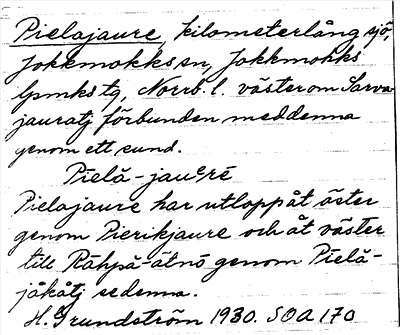 Pielajaure, kilometerlång sjö,
Jokkmokks sn, Jokkmokks
lpmks tg, Norrb. l. väster om Sarva
jauratj förbunden med denna
genom ett sund.
Pīelā-jauᵉrē
Pielajaure har utlopp åt öster
genom Pierikjaure och åt väster
till Rāhpā-ätnō genom Pīelā-
jåkåtj se denna.
H. Grundström 1930. SOA 170